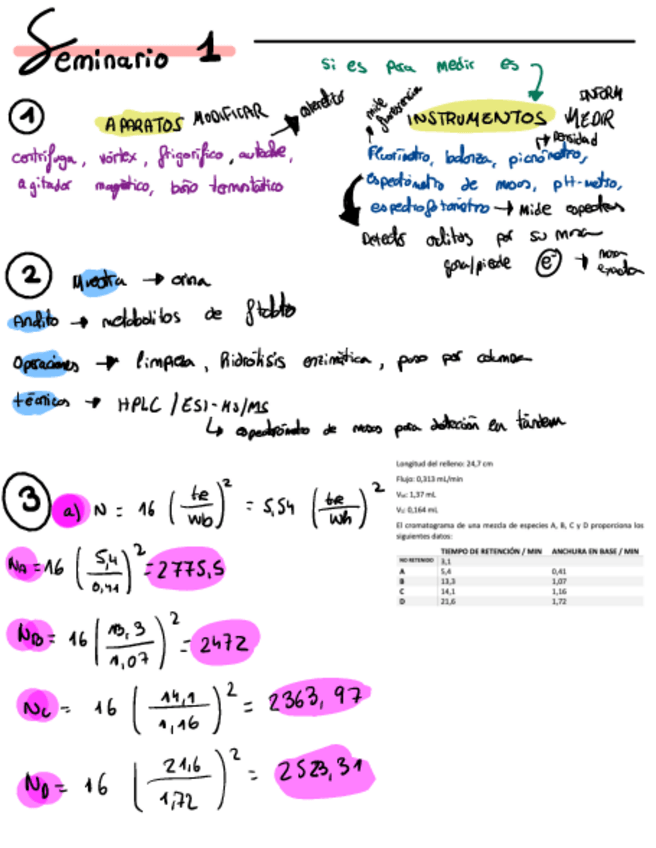 Seminario 1
si es para medir es
1
APARATOS MODIFICAR
centrífuga, vórtex, frigorífico, autoclave,
agitador magnético, baño termostático
mide fluorescencia
INSTRUMENTOS
INFORM
MEDIR
densidad
Fluorímetro, balanza, picnómetro,
espectrómetro de masas, pH-metro,
espectrofotómetro → Mide espectros
Detecta analitos por su masa
gana/pierde e⁻ → masa exacta
2
Muestra → orina
Analito → metabolitos de ftalato
Operaciones → limpieza, hidrólisis enzimática, paso por columna
técnicas → HPLC / ESI-MS/MS
↳ espectrómetro de masas para detección en tándem
3
a) N = 16 (tR/Wb)² = 5,54 (tR/Wh)²
NA = 16 (5,4/0,41)² = 2775,5
NB = 16 (13,3/1,07)² = 2472
NC = 16 (14,1/1,16)² = 2363,97
ND = 16 (21,6/1,72)² = 2523,31
Longitud del relleno: 24,7 cm
Flujo: 0,313 mL/min
VM: 1,37 mL
VS: 0,164 mL
El cromatograma de una mezcla de especies A, B, C y D proporciona los
siguientes datos:
TIEMPO DE RETENCIÓN / MIN ANCHURA EN BASE / MIN
NO RETENIDO 3,1
A 5,4 0,41
B 13,3 1,07
C 14,1 1,16
D 21,6 1,72